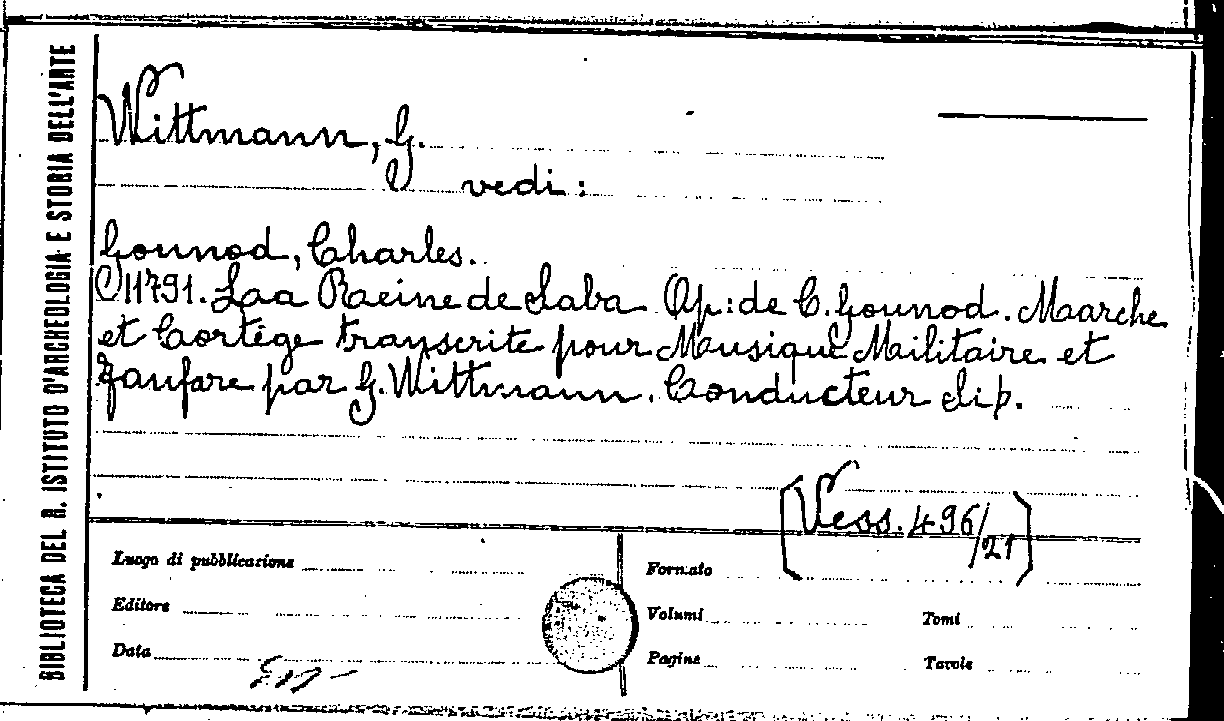 BIBLIOTECA DEL R. ISTITUTO D'ARCHEOLOGIA E STORIA DELL'ARTE
Wittmann, G.
vedi:
Gounod, Charles.
11791. Laa Racine de Saba Op: de C. Gounod. Maarche
et Cortège transcrite pour Musique Militaire et
Fanfare par G. Wittmann. Conducteur Sip.
[Vess. 496/21]
Luogo di pubblicazione
Editore
Data
Formato
Volumi Tomi
Pagine Tavole